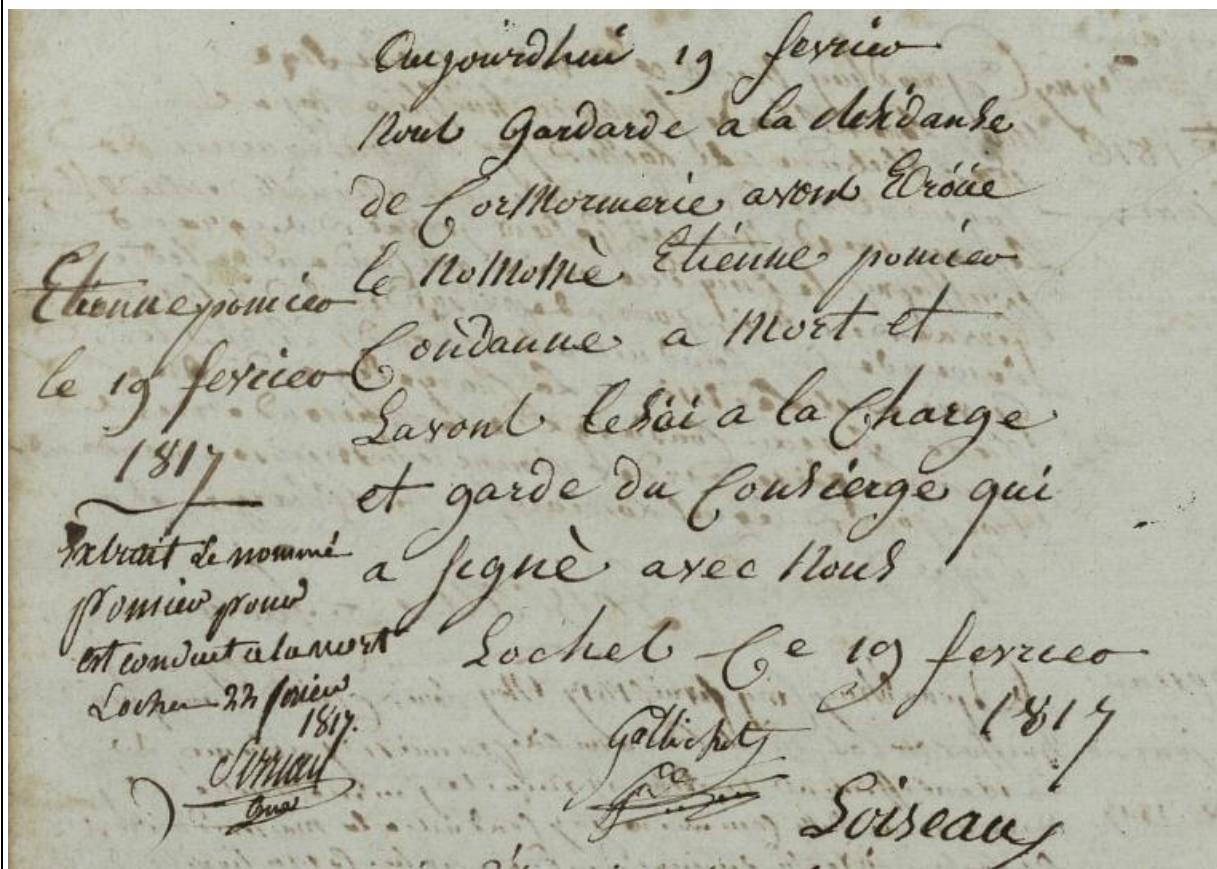 Etienne pomier
le 19 fevrier
1817
Extrait le nommé
Pomier pour
est conduit a la mort
Loches 22 fevrier
1817.
Aujourdhui 19 fevrier
Nous Gardarde a la
de Cormormerie avons Ecroüe
le Nomomè Etiénne pomier
Condanne a Mort et
Lavons lesai a la Charge
et garde du Consierge qui
a signè avec Nous
Loches Ce 19 fevrier
1817
Gallichet
Loiseau